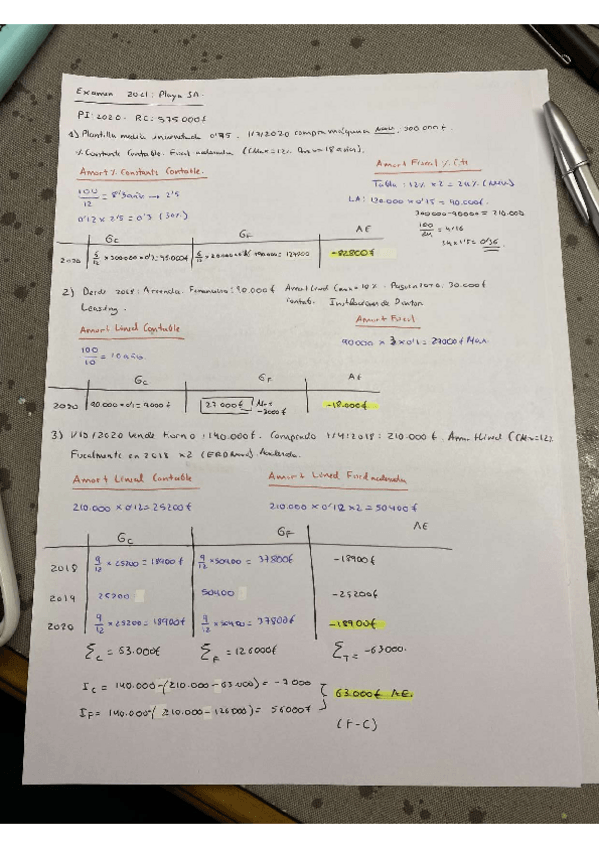 Examen 2021: Playa SA.
PI: 2020. RC: 375000€
1) Plantilla media incrementada 0'75. 1/7/2020 compra máquina nueva: 300 000€.
% Constante Contable. Fiscal acelerada (CMax=12% Amax=18 años).
Amort % Constante Contable.
Amort Fiscal % Cte
100/12 = 8'3 años → 2'5
0'12 x 2'5 = 0'3 (30%)
Tabla: 12% x 2 = 24% (Max)
LA: 120.000 x 0'75 = 90.000€
300 000 - 90000 = 210.000
100/24 = 4'16
24 x 1'5 = 0'36
Gc GF AE
2020 6/12 x 300 000 x 0'3 = 45.000€ -82800€
2) Desde 2018: Arrendam. Financiero: 90.000€ Amort Lineal Cmax=10%. Pagan 2020: 30.000€
Leasing. Contab. Instalaciones
Amort Lineal Contable
Amort Fiscal
100/10 = 10 años
90000 x 3 x 0'1 = 27000€ Max.
Gc GF AE
2020 90.000 x 0'1 = 9000€ 27.000€ -3000€ -18.000€
3) 1/10/2020 Vende horno: 140.000€. Comprado 1/4/2018: 210.000€. Amort lineal (CMax=12).
Fiscalmente en 2018 x2 (ERD) Acelerada.
Amort Lineal Contable
Amort Lineal Fiscal acelerada
210.000 x 0'12 = 25200€
210.000 x 0'12 x 2 = 50400€
Gc GF AE
2018 9/12 x 25200 = 18900€ 9/12 x 50400 = 37800€ -18900€
2019 25200 50400 -25200€
2020 9/12 x 25200 = 18900€ 9/12 x 50400 = 37800€ -18900€
Σc = 63.000€ ΣF = 126000€ ΣT = -63000.
Ic = 140.000 - (210.000 - 63.000) = -7000
63.000€ AE.
IF = 140.000 - (210.000 - 126000) = 56000€
(F-C)